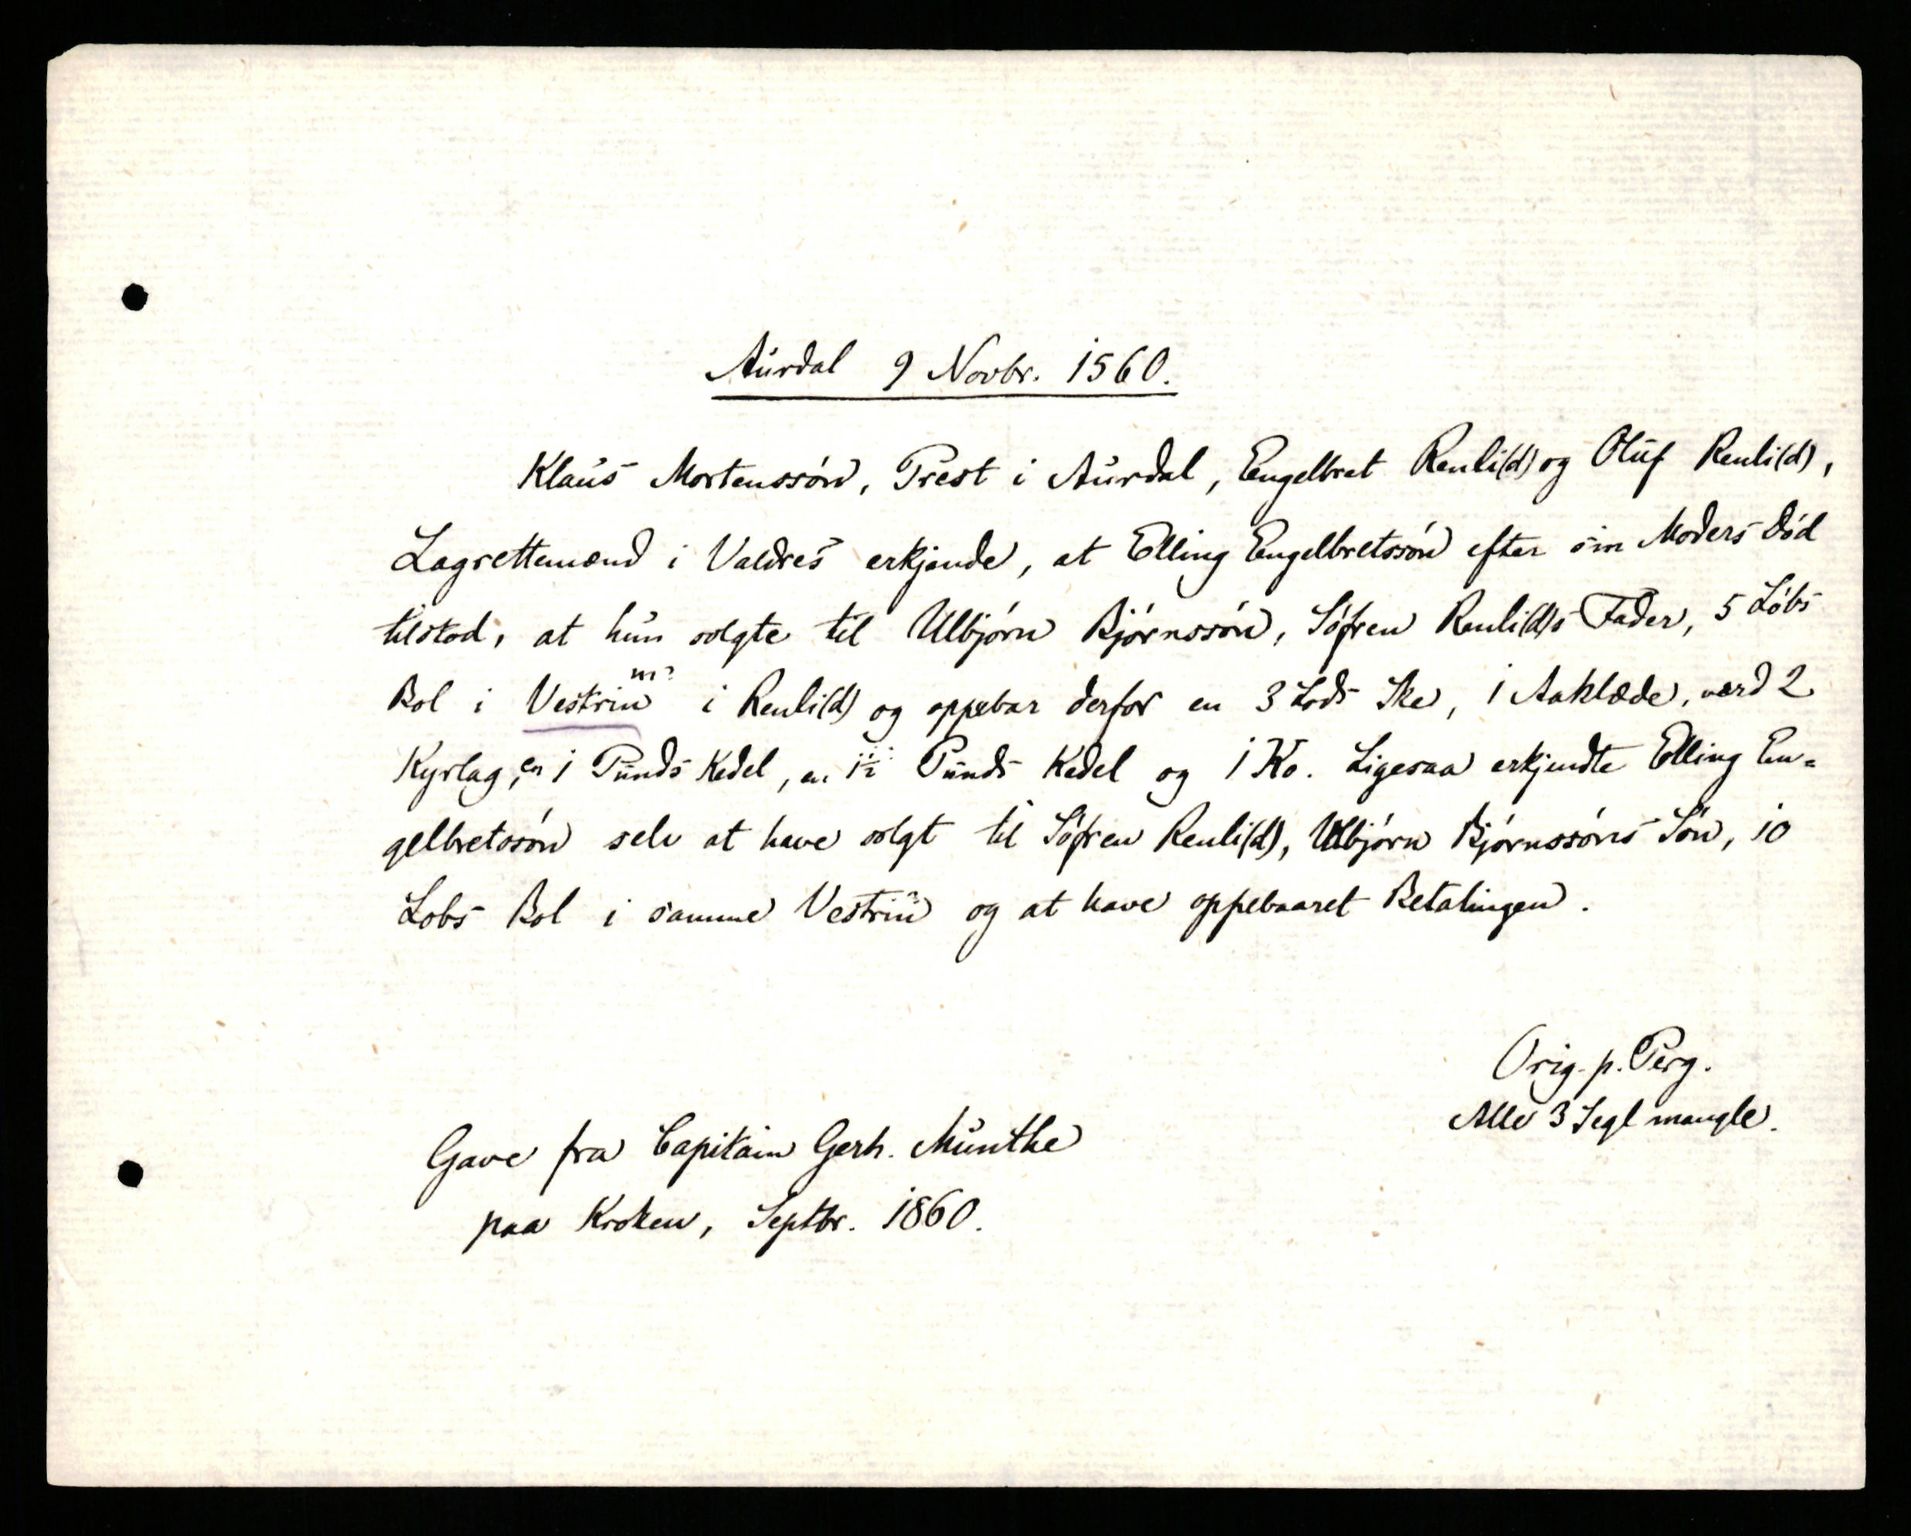 Aurdal 9 Novbr. 1560.
Klaus Mortenssön, Prest i Aurdal, Engelbret Renli(d) og Oluf Renli(d),
Lagrettemænd i Valdres erkjende, at Elling Engelbretssön efter sin Moders Död
tilstod, at hun solgte til Ulbjörn Björnssön, Söfren Renli(d)s Fader, 5 Löbs
Bol i Vestrin i Renli(d) og oppebar derfor en 3 Lods Ske, 1 Aaklæde, værd 2
Kyrlag, en 1 Punds Kedel, en 1½ Punds Kedel og 1 Ko. Ligesaa erkjendte Elling En-
gelbretssön selv at have solgt til Söfren Renli(d), Ulbjörn Björnssöns Sön, 10
Lobs Bol i samme Vestrin og at have oppebaaret Betalingen.
Orig. p. Perg.
Alle 3 Segl mangle.
Gave fra Capitain Gerh. Munthe
paa Kroken, Septbr. 1860.